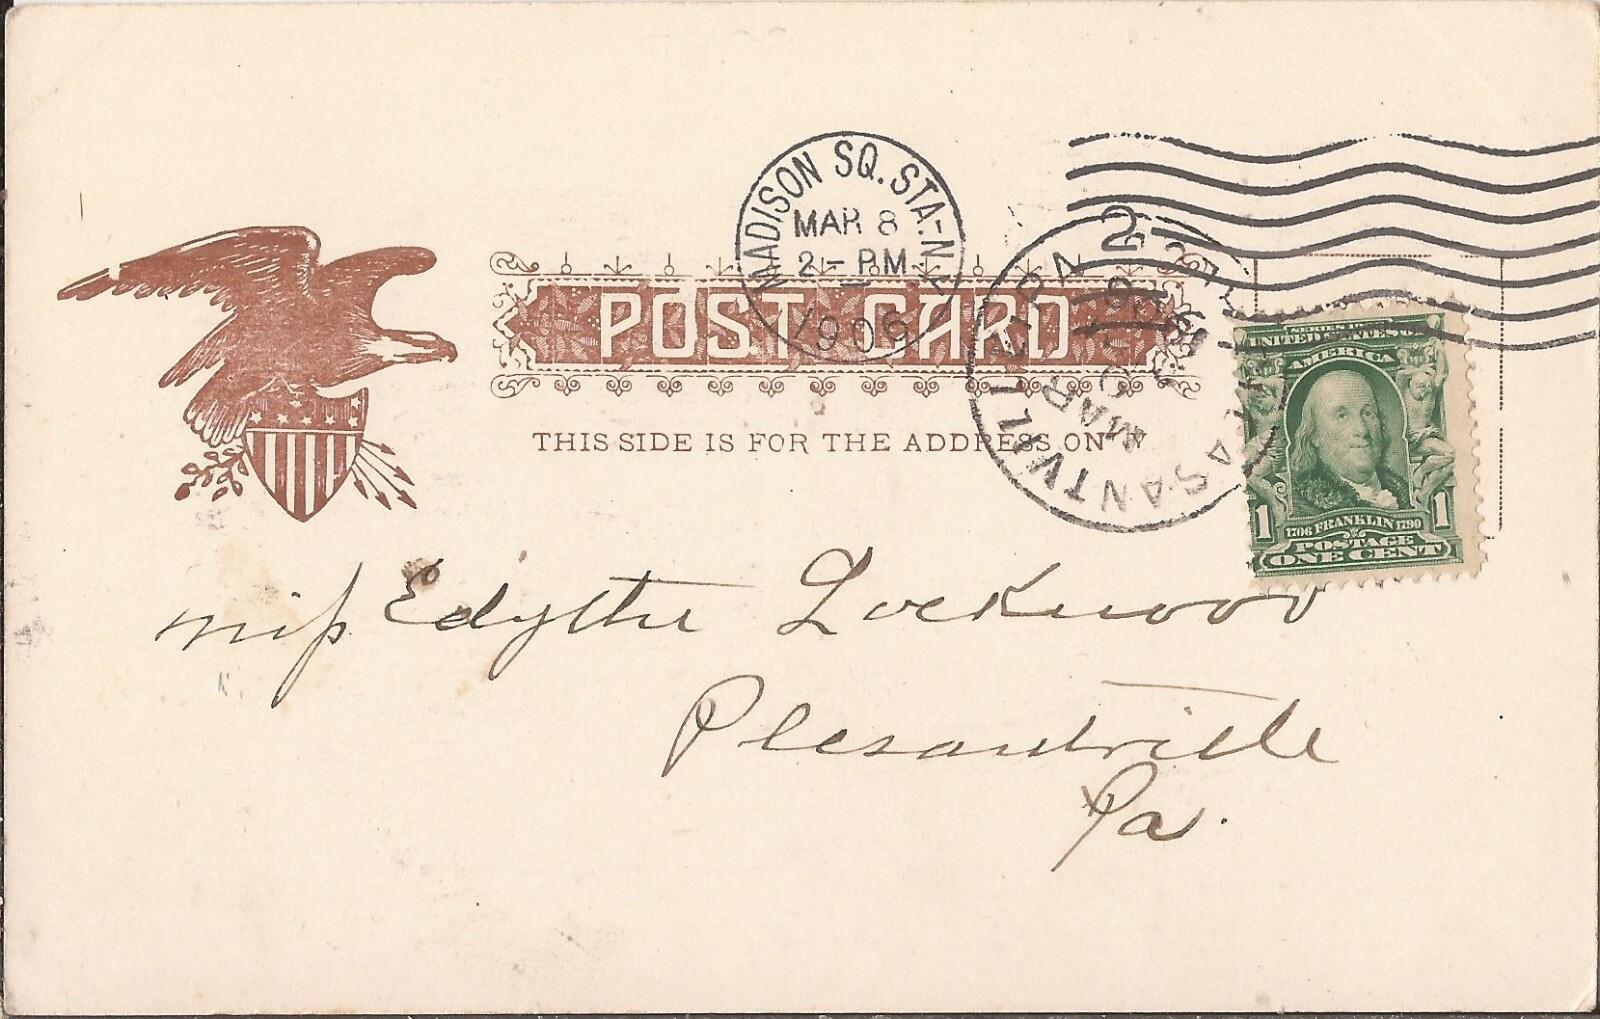 MADISON SQ. STA. N.Y.
MAR 8
2 - PM
1906
POST CARD
THIS SIDE IS FOR THE ADDRESS ONLY
PLEASANTVILLE
MAR
PA
2
SERIES 1902
UNITED STATES OF
AMERICA
1 1706 FRANKLIN 1790 1
POSTAGE
ONE CENT
Miss Edythe Lockwood
Plesantville
Pa.